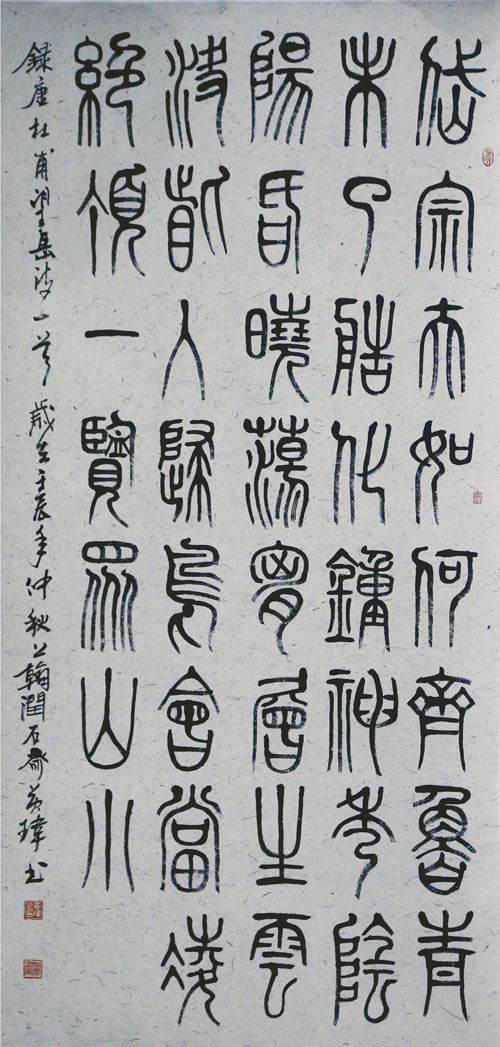 岱宗夫如何齊魯青
未了造化鍾神秀陰
陽昏曉蕩胸層生雲
決眥入歸鳥會當凌
絕頂一覽眾山小
錄唐杜甫望岳詩一首 歲在壬辰年仲秋於翰潤石齋 瑋書